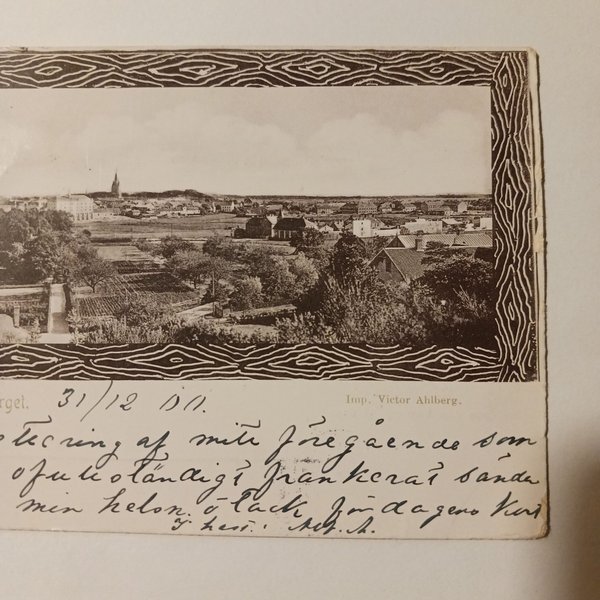 rget. 31/12 00.
Imp. Victor Ahlberg.
stecring af mitt föregående som
ofullständigt frankerat sände
min helsn. o tack för dagens kort
I hast. Alb. A.